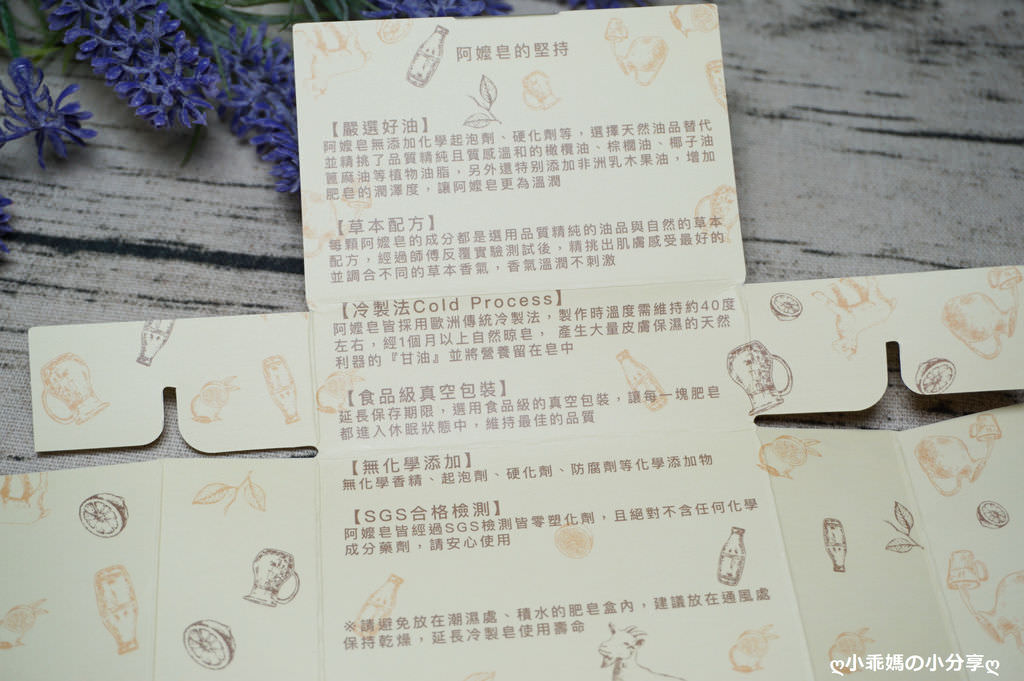 阿嬤皂的堅持
【嚴選好油】
阿嬤皂無添加化學起泡劑、硬化劑等，選擇天然油品替代
並精挑了品質精純且質感溫和的橄欖油、棕櫚油、椰子油
蓖麻油等植物油脂，另外還特別添加非洲乳木果油，增加
肥皂的潤澤度，讓阿嬤皂更為溫潤
【草本配方】
每顆阿嬤皂的成分都是選用品質精純的油品與自然的草本
配方，經過師傅反覆實驗測試後，精挑出肌膚感受最好的
並調合不同的草本香氣，香氣溫潤不刺激
【冷製法Cold Process】
阿嬤皂皆採用歐洲傳統冷製法，製作時溫度需維持約40度
左右，經1個月以上自然晾皂， 產生大量皮膚保濕的天然
利器的『甘油』並將營養留在皂中
【食品級真空包裝】
延長保存期限，選用食品級的真空包裝，讓每一塊肥皂
都進入休眠狀態中，維持最佳的品質
【無化學添加】
無化學香精、起泡劑、硬化劑、防腐劑等化學添加物
【SGS合格檢測】
阿嬤皂皆經過SGS檢測皆零塑化劑，且絕對不含任何化學
成分藥劑，請安心使用
※請避免放在潮濕處、積水的肥皂盒內，建議放在通風處
保持乾燥，延長冷製皂使用壽命
ღ小乖媽の小分享ღ